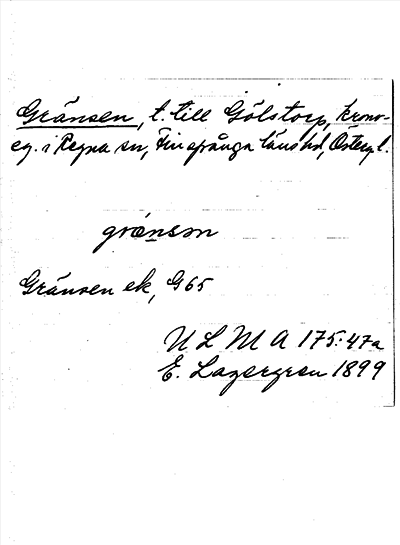 Gränsen, t. till Gölstorp, krono-
eg. i Regna sn, Finspånga läns hd, Österg. l.
grænsən
Gränsen ek, G65
ULMA 175:47a
E. Lagergren 1899